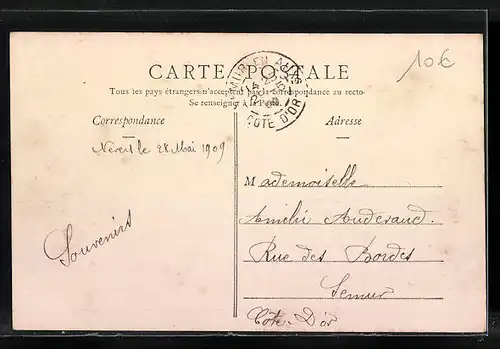 10€
CARTE POSTALE
Tous les pays étrangers n'acceptent pas la correspondance au recto
Se renseigner à la Poste
SEMUR-EN-AUXOIS
CÔTE D'OR
Correspondance
Adresse
le 28 Mai 1909
Souvenirs
Mademoiselle
Amélie
Rue des Bordes
Semur
Côte-D'or